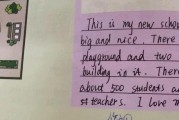 This is my new schoo
big and nice. There
playground and two
building is it. There
about 500 students a
teachers. I love m